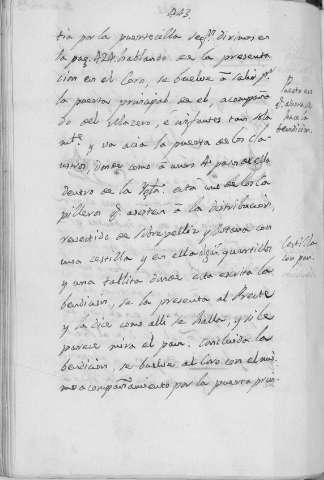 443.
tia por la puertecilla segn. dixinos en
la pag. 424. hablando de la presenta
cion en el Coro, se buelve à salir pr.
la puerta principal de el, acompaña
do del Mazero, e infantes tan sola
mte. y va acia la puerta de los Cla
ustros, donde como à unos 4o. pasos de ella
dentro de la Iglª. està uno de los Ca
pilleros q asisten à la distribucion,
revestido de Sobrepelliz y Estola con
una cestilla y en ella quartillos
y una tablita donde esta escrita la
bendicion, se la presenta al Preste
y la dice como alli se halla, y si le
parece mira el pan. Concluida la
bendicion se buelve al Coro con el mis
mo acompañamiento por la puerta prin-
Puesto en
q. ahora se
hace la
bendicion.
Cestilla
con pan.